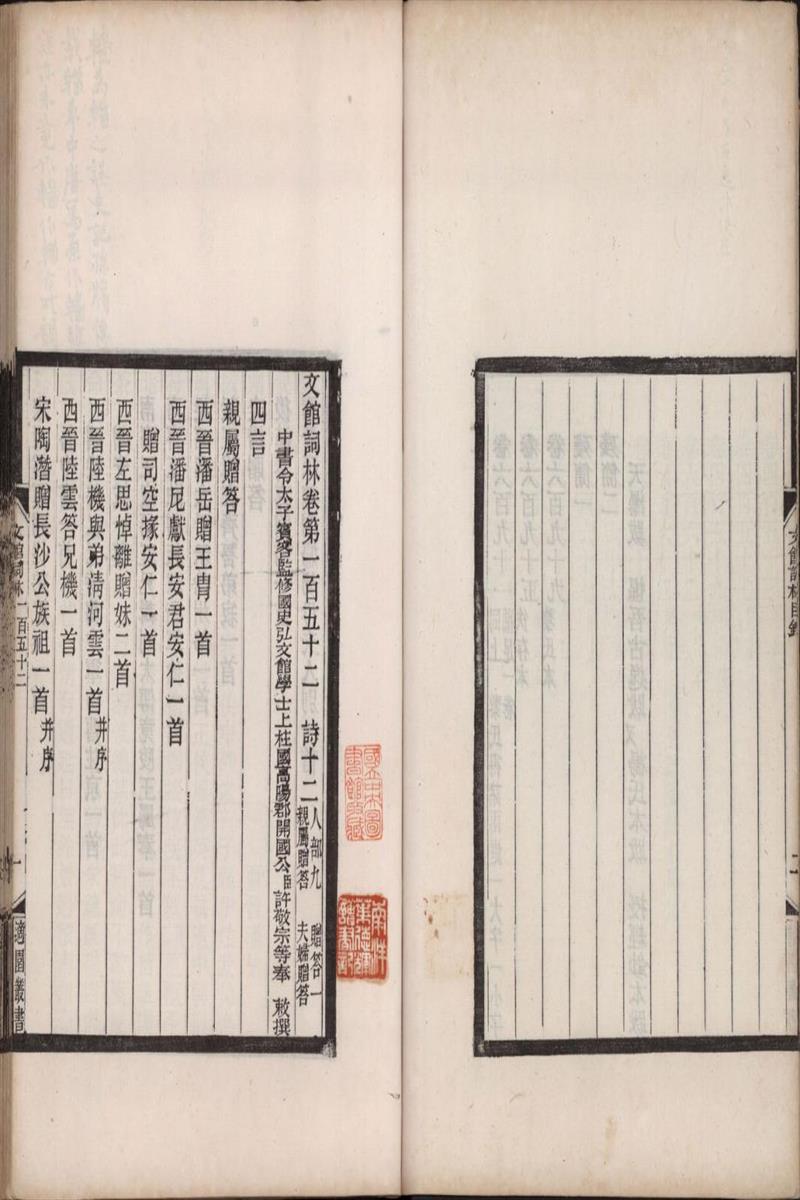 文館詞林目錄
二
文館詞林卷第一百五十二 詩十二 人部九 贈答一 親屬贈答 夫婦贈答
中書令太子賓客監修國史弘文館學士上柱國高陽郡開國公臣許敬宗等奉 敕撰
四言
親屬贈答
西晉潘岳贈王冑一首
西晉潘尼獻長安君安仁一首
贈司空掾安仁一首
西晉左思悼離贈妹二首
西晉陸機與弟淸河雲一首并序
西晉陸雲答兄機一首
宋陶潛贈長沙公族祖一首并序
文館詞林 一百五十二
一
適園叢書
國立中央圖書館收藏